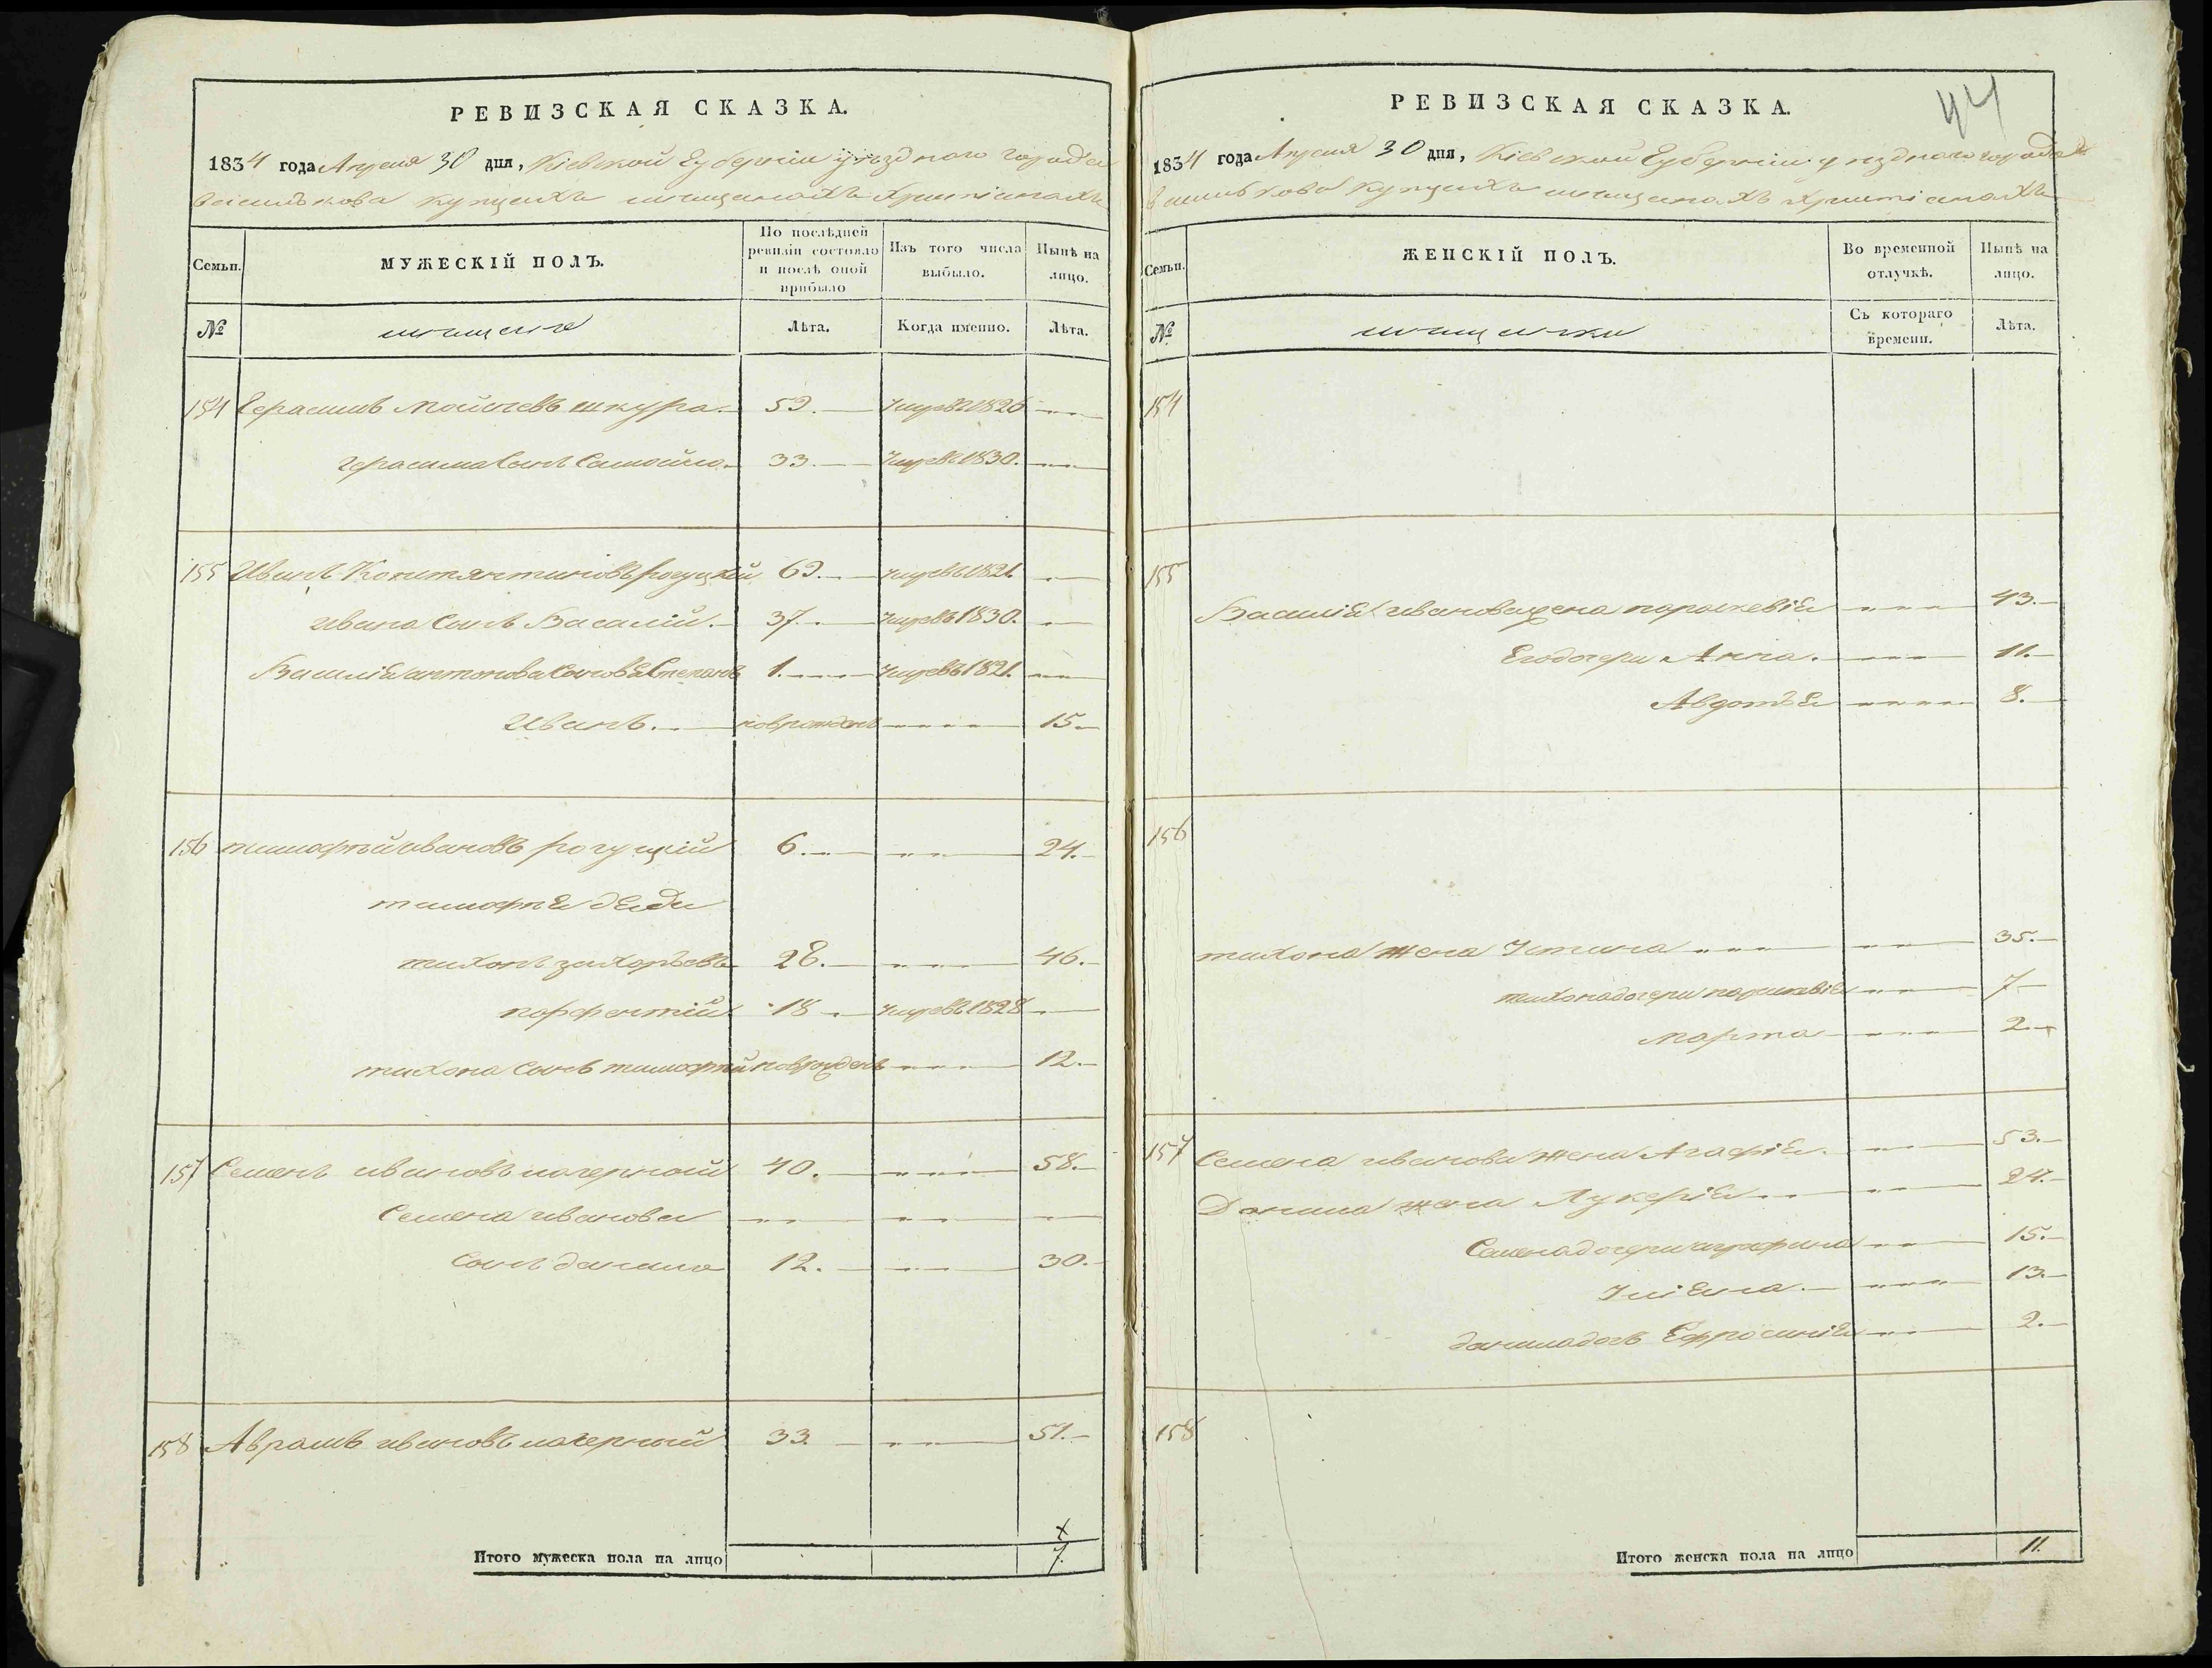 РЕВИЗСКАЯ СКАЗКА.
1834 года Апреля 30 дня, Кіевской Губерніи уѣзднаго города
Василькова купцахъ мещанахъ християнахъ
Семьи.
МУЖЕСКІЙ ПОЛЪ.
По послѣдней ревизіи состояло и послѣ оной прибыло
Изъ того числа выбыло.
Нынѣ на лицо.
№
мещане
Лѣта.
Когда именно.
Лѣта.
154 Герасимъ Моисеевъ шкура 59. умре въ 1826
Герасима Сынъ Самойло 33. умре въ 1830.
155 Иванъ Константиновъ рогуцкій 69. умре въ 1821.
ивана Сынъ Василій. 37. умре въ 1830.
Василія антонова Сыновья Степанъ 1. умре въ 1821.
Иванъ. новрожденъ 15.
156 тимофей ивановъ рогуцкій 6. 24.
тимофея дяди
тихонъ захарьевъ 28. 46.
поффентій 18 умре въ 1828
тихона Сынъ тимофей новрожденъ 12.
157 Семенъ ивановъ 40. 58.
Семена иванова
Сынъ данило 12. 30.
158 Аврамъ ивановъ 33. 51.
Итого мужеска пола на лицо
х
7.
44
РЕВИЗСКАЯ СКАЗКА.
1834 года Апреля 30 дня, Кіевской Губерніи уѣзднаго города
Василькова купцахъ мещанахъ християнахъ
Семьи.
ЖЕНСКІЙ ПОЛЪ.
Во временной отлучкѣ.
Нынѣ на лицо.
№
мещанки
Съ котораго времени.
Лѣта.
154
155
Василія иванова жена параскевія 43.
Его дочери Анна. 11.
Авдотья 8.
156
тихона жена Устина 35.
тихона дочери параскевія 7
марта 2.
157 Семена иванова жена Агафія. 53.
Данила жена Лукерія 24.
Семена дочери 15.
Уліяна. 13.
данила дочь Ефросинія 2.
158
Итого женска пола на лицо 11.